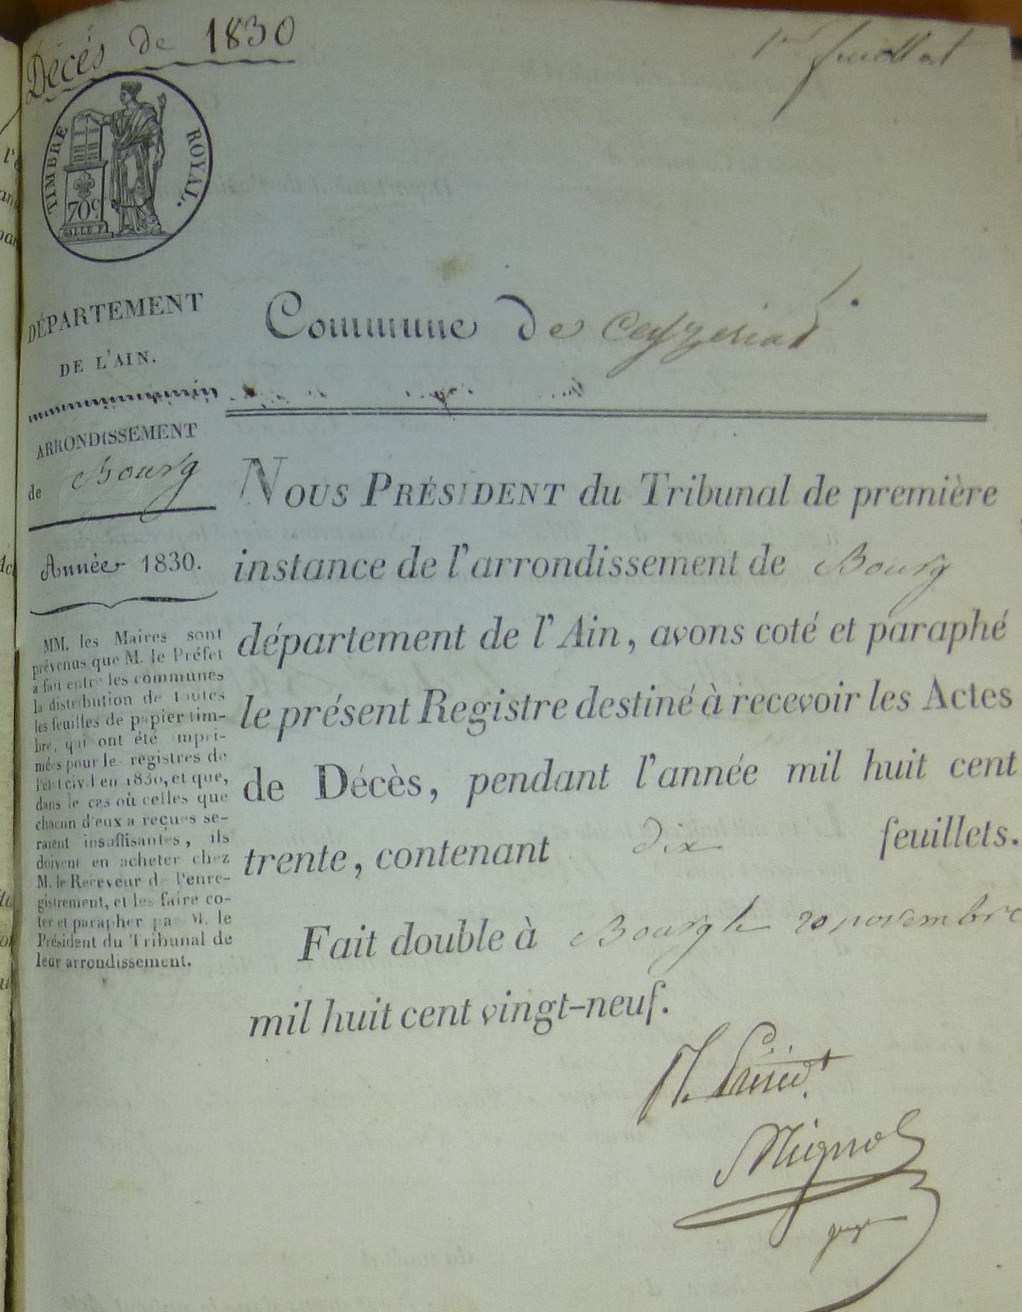 Décès de 1830
1er feuillet
TIMBRE ROYAL.
70c
DÉPARTEMENT
DE L'AIN.
Commune de Ceyzeriat
ARRONDISSEMENT
de Bourg
Année 1830.
MM. les Maires sont
prévenus que M. le Préfet
a fait entre les communes
la distribution de toutes
les feuilles de papier tim-
bré, qui ont été impri-
mées pour les registres de
l'état civil en 1830, et que,
dans le cas où celles que
chacun d'eux a reçues se-
raient insuffisantes, ils
doivent en acheter chez
M. le Receveur de l'enre-
gistrement, et les faire co-
ter et parapher par M. le
Président du Tribunal de
leur arrondissement.
NOUS PRÉSIDENT du Tribunal de première
instance de l'arrondissement de Bourg
département de l'Ain, avons coté et paraphé
le présent Registre destiné à recevoir les Actes
de Décès, pendant l'année mil huit cent
trente, contenant dix feuillets.
Fait double à Bourg le 20 novembre
mil huit cent vingt-neuf.